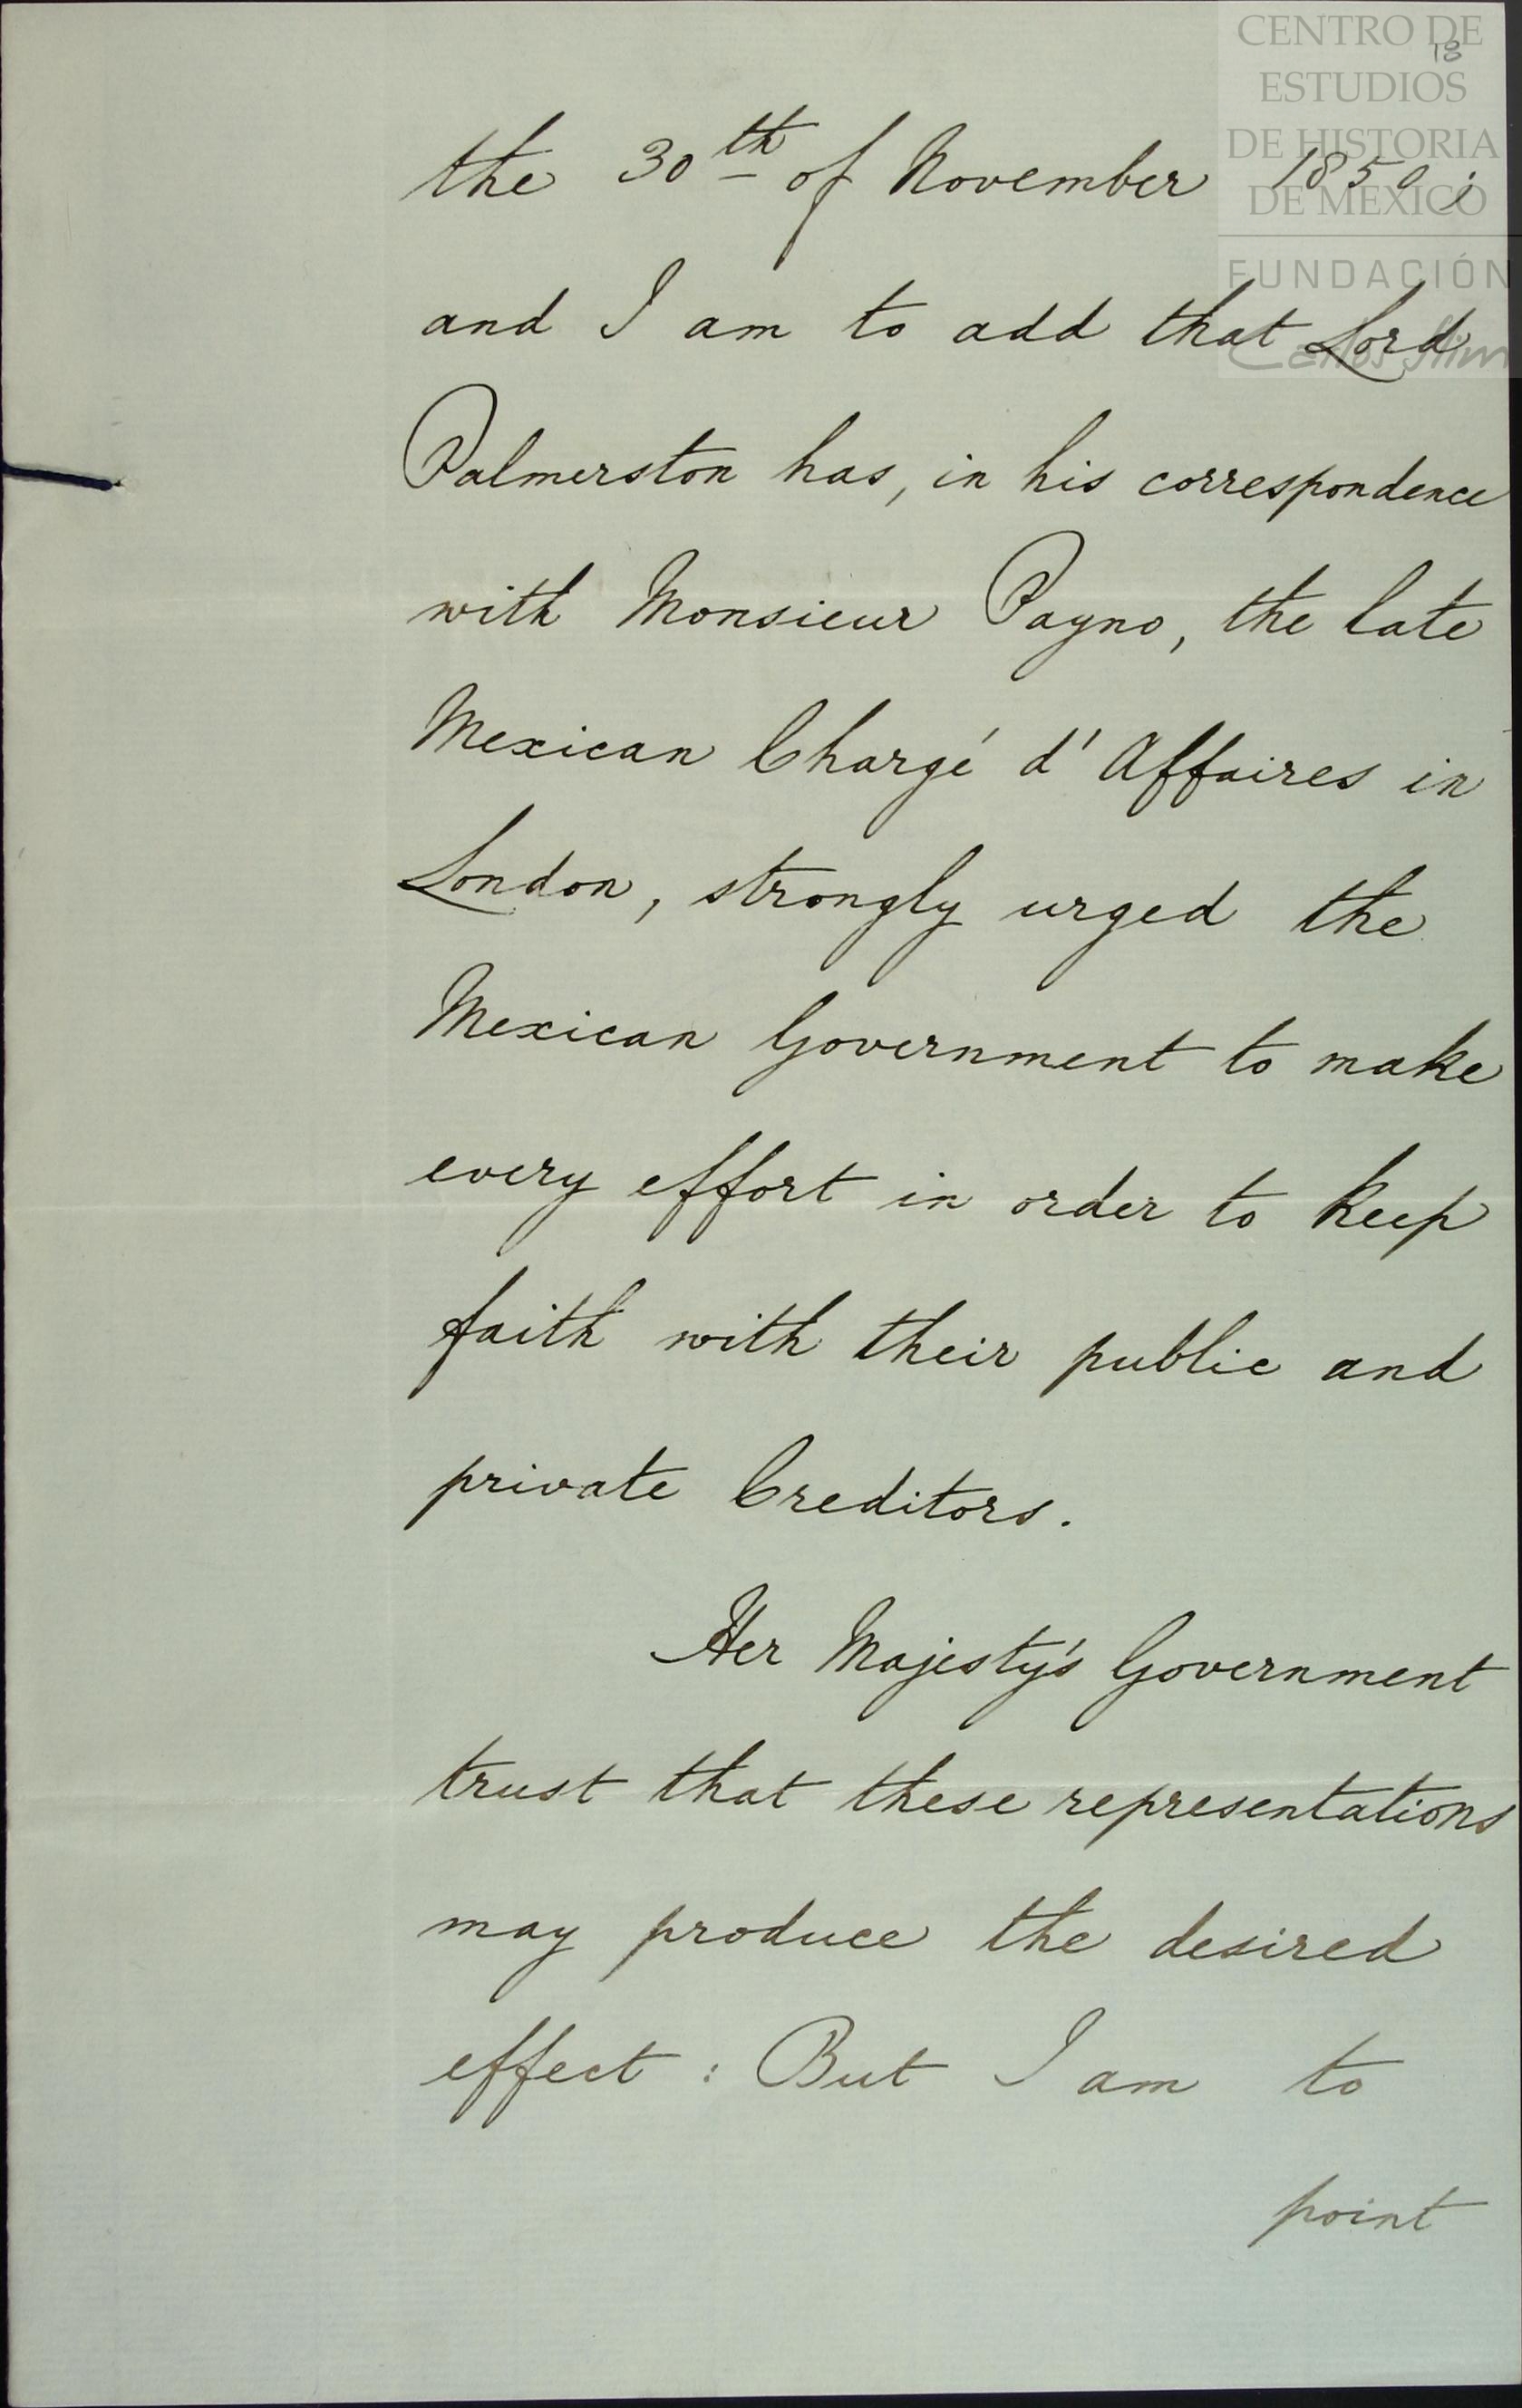 CENTRO DE
18
ESTUDIOS
DE HISTORIA
DE MEXICO
FUNDACIÓN
Carlos Slim
the 30th of November 1850;
and I am to add that Lord
Palmerston has, in his correspondence
with Monsieur Payno, the late
Mexican Chargé d'Affaires in
London, strongly urged the
Mexican Government to make
every effort in order to keep
faith with their public and
private Creditors.
Her Majesty's Government
trust that these representations
may produce the desired
effect: But I am to
point